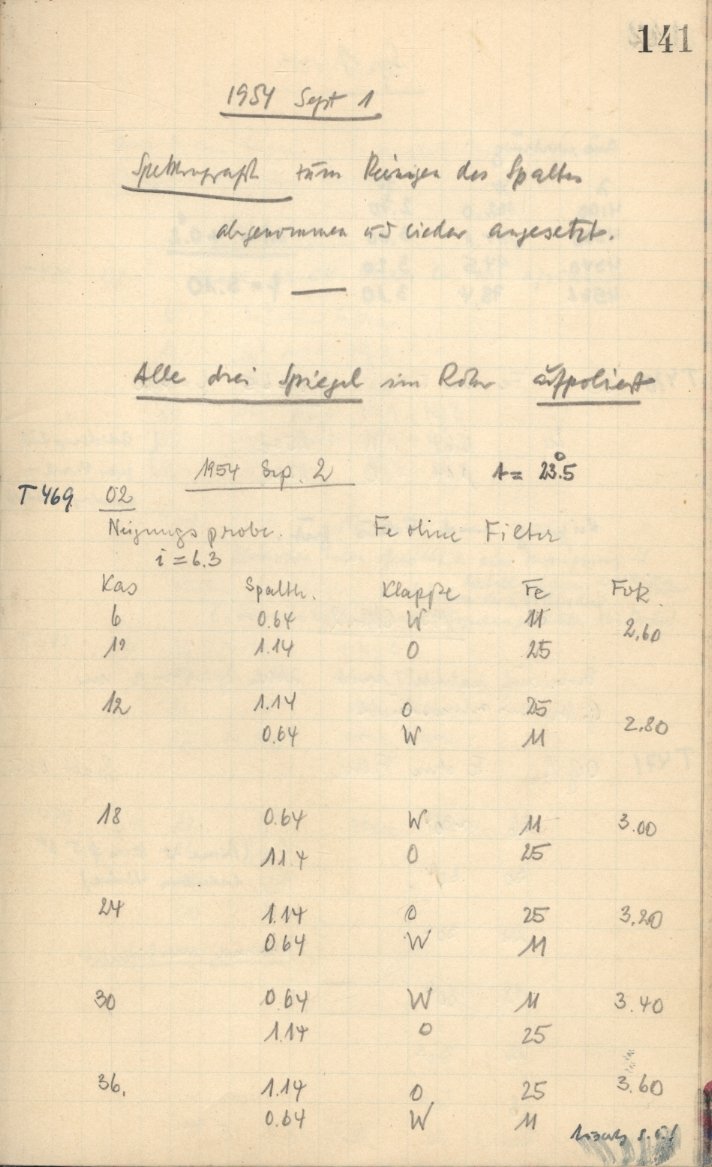 141
1954 Sept 1
Spektrograph zum Reinigen des Spaltes
abgenommen und wieder angesetzt.
Alle drei Spiegel im Rohr aufpoliert
1954 Sep. 2 t = 23.5°
T 469 02
Neigungsprobe. Fe ohne Filter
i = 6.3
Kas Spalth. Klappe Fe Fok.
6 0.64 W 11 2.60
1.14 O 25
12 1.14 O 25 2.80
0.64 W 11
18 0.64 W 11 3.00
1.14 O 25
24 1.14 O 25 3.20
0.64 W 11
30 0.64 W 11 3.40
1.14 O 25
36. 1.14 O 25 3.60
0.64 W 11